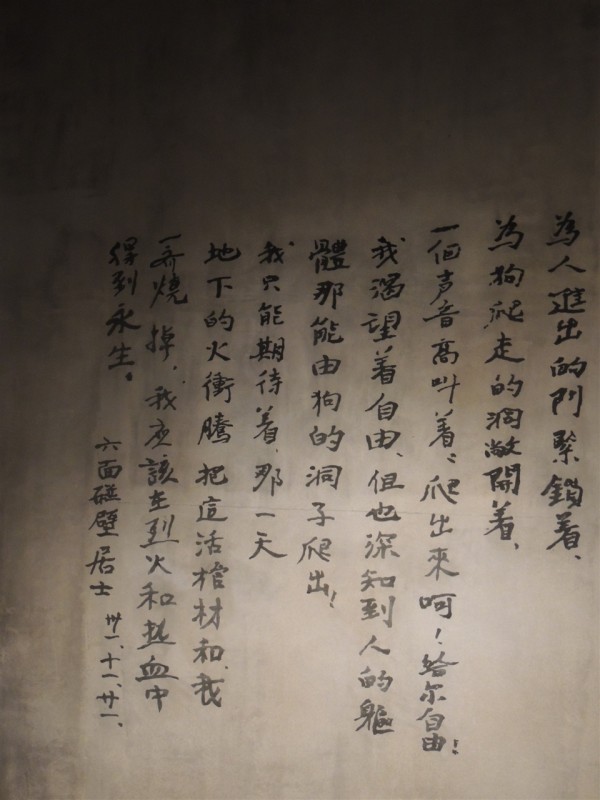 為人進出的門緊鎖着、
為狗爬走的洞敞開着、
一個声音高叫着、爬出來呵！給尔自由！
我渴望着自由、但也深知到人的軀
體那能由狗的洞子爬出！
我只能期待着、那一天
地下的火衝騰把這活棺材和我
一齊燒掉、我应該在烈火和热血中
得到永生。
六面碰壁居士 卅一、十一、廿一、